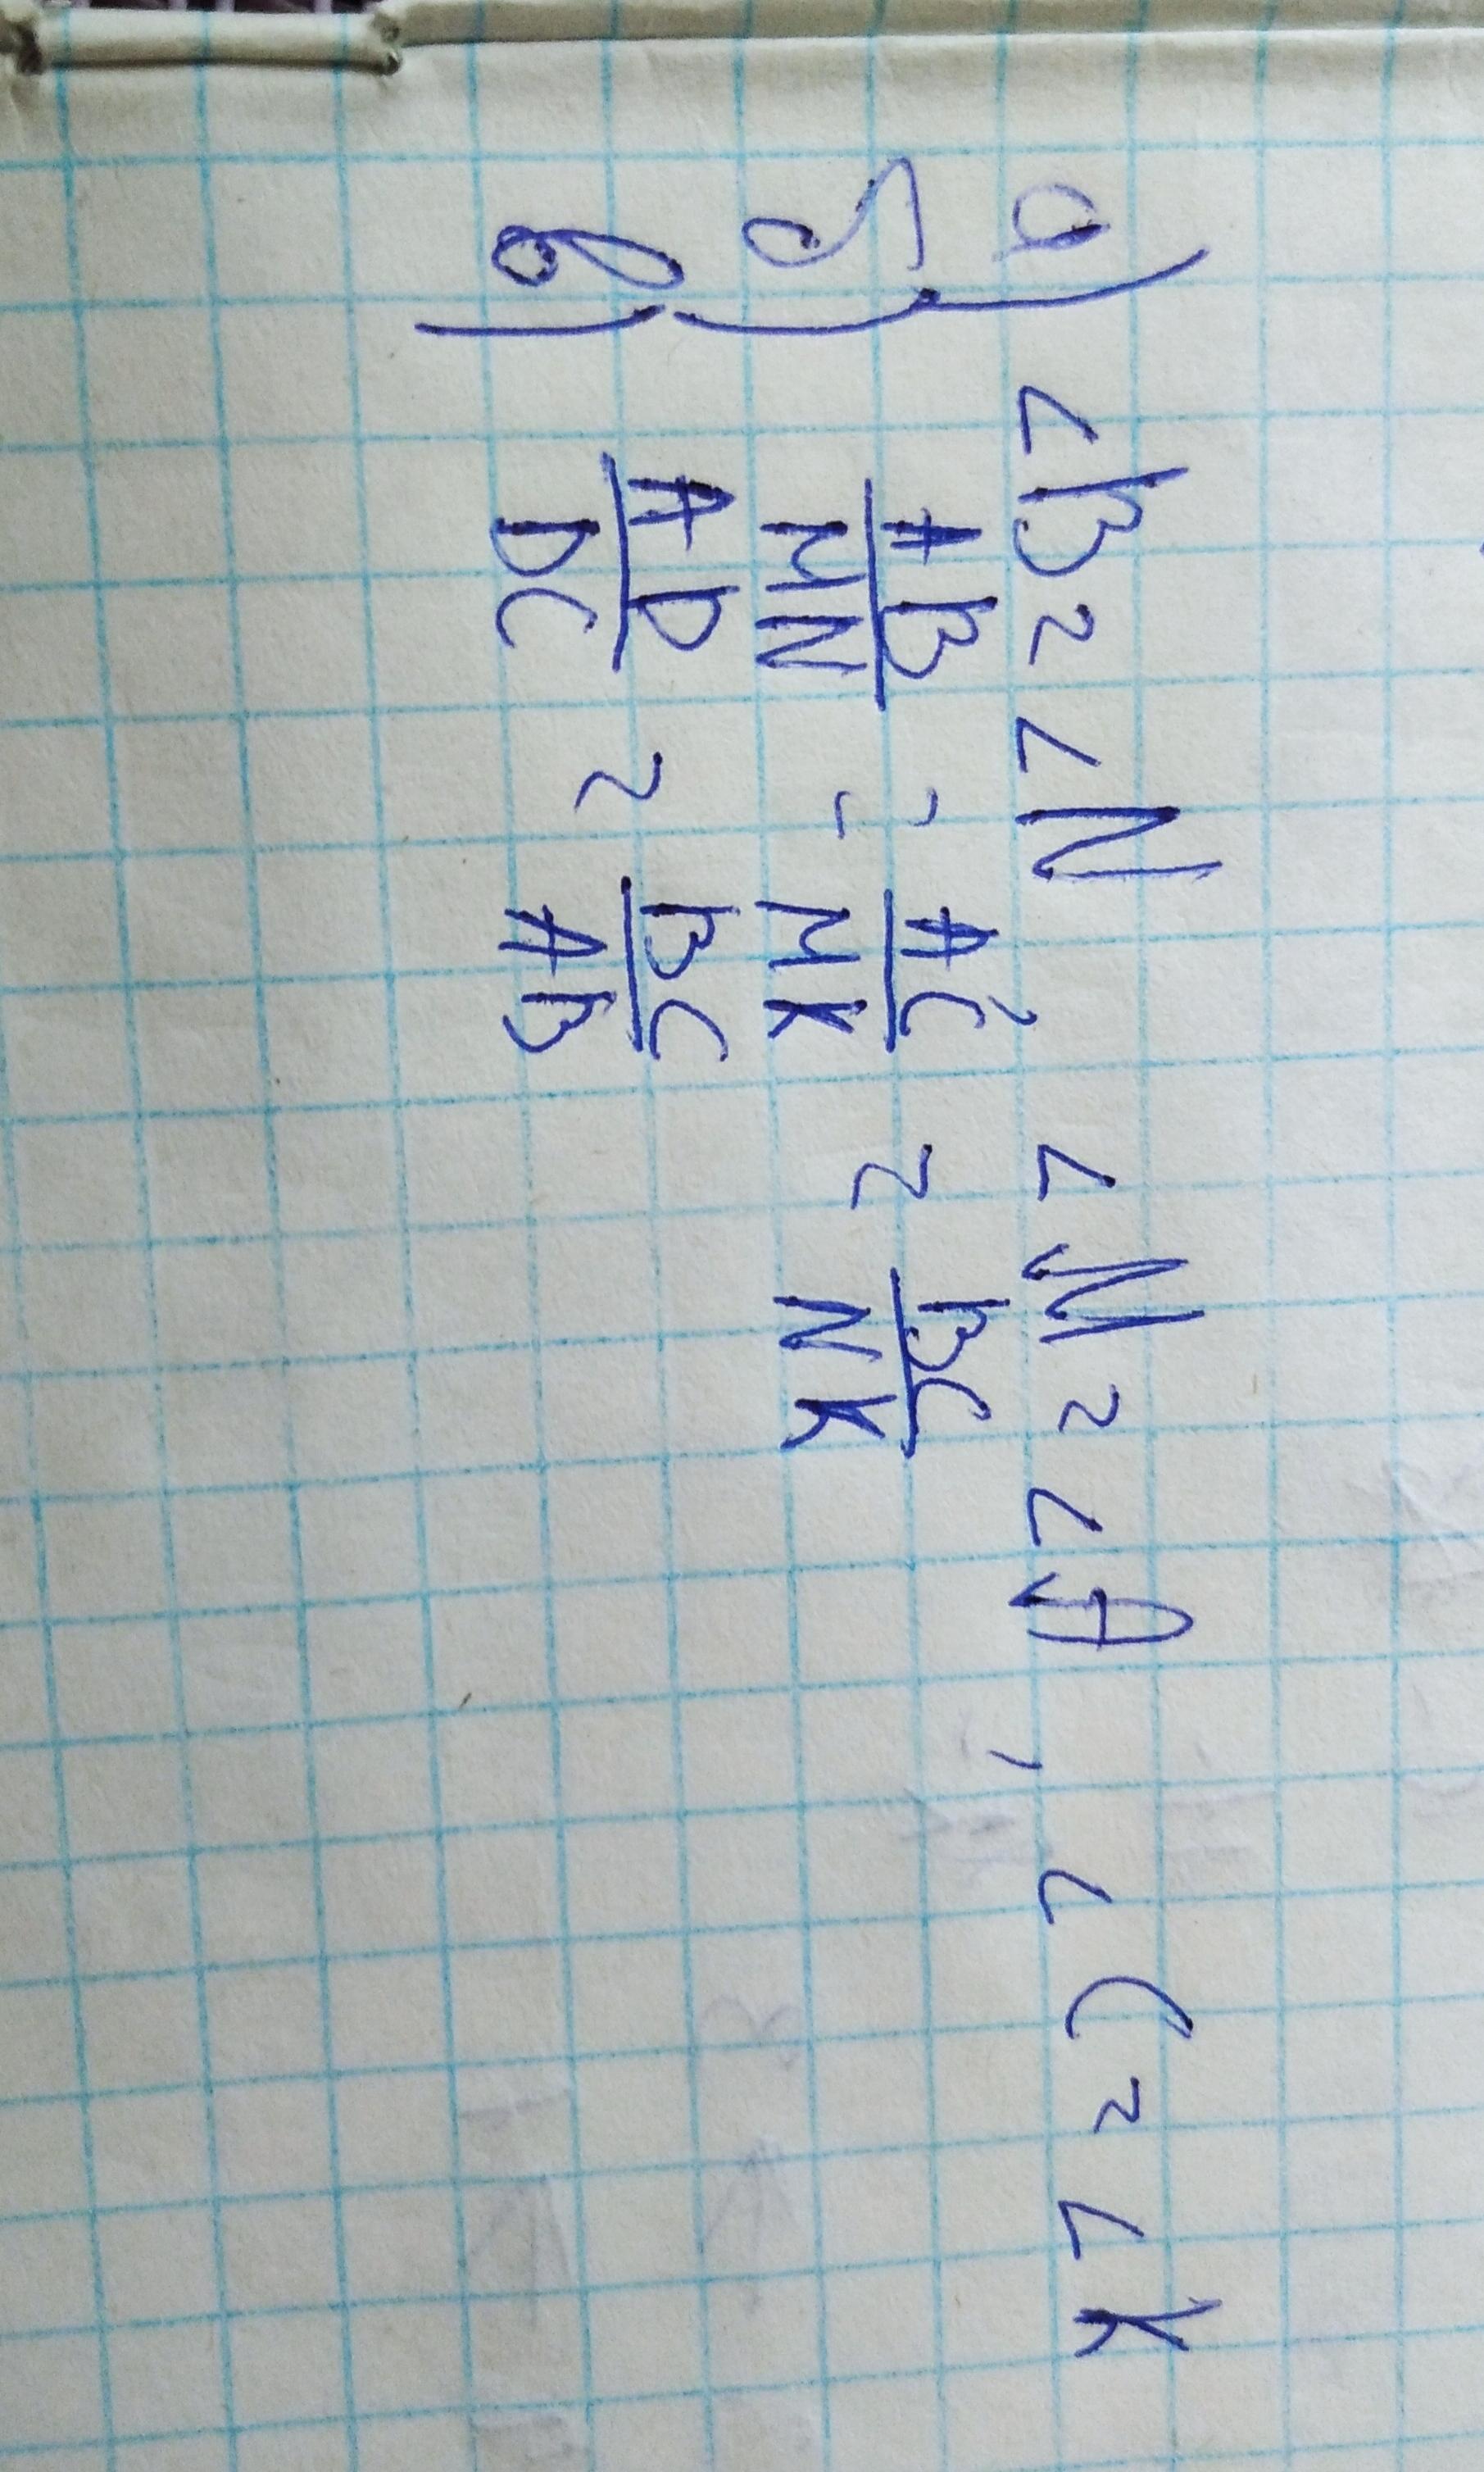 а) ∠B = ∠N, ∠M = ∠A, ∠C = ∠K
б) AB/MN = AC/MK = BC/NK
в) AD/DC = BC/AB